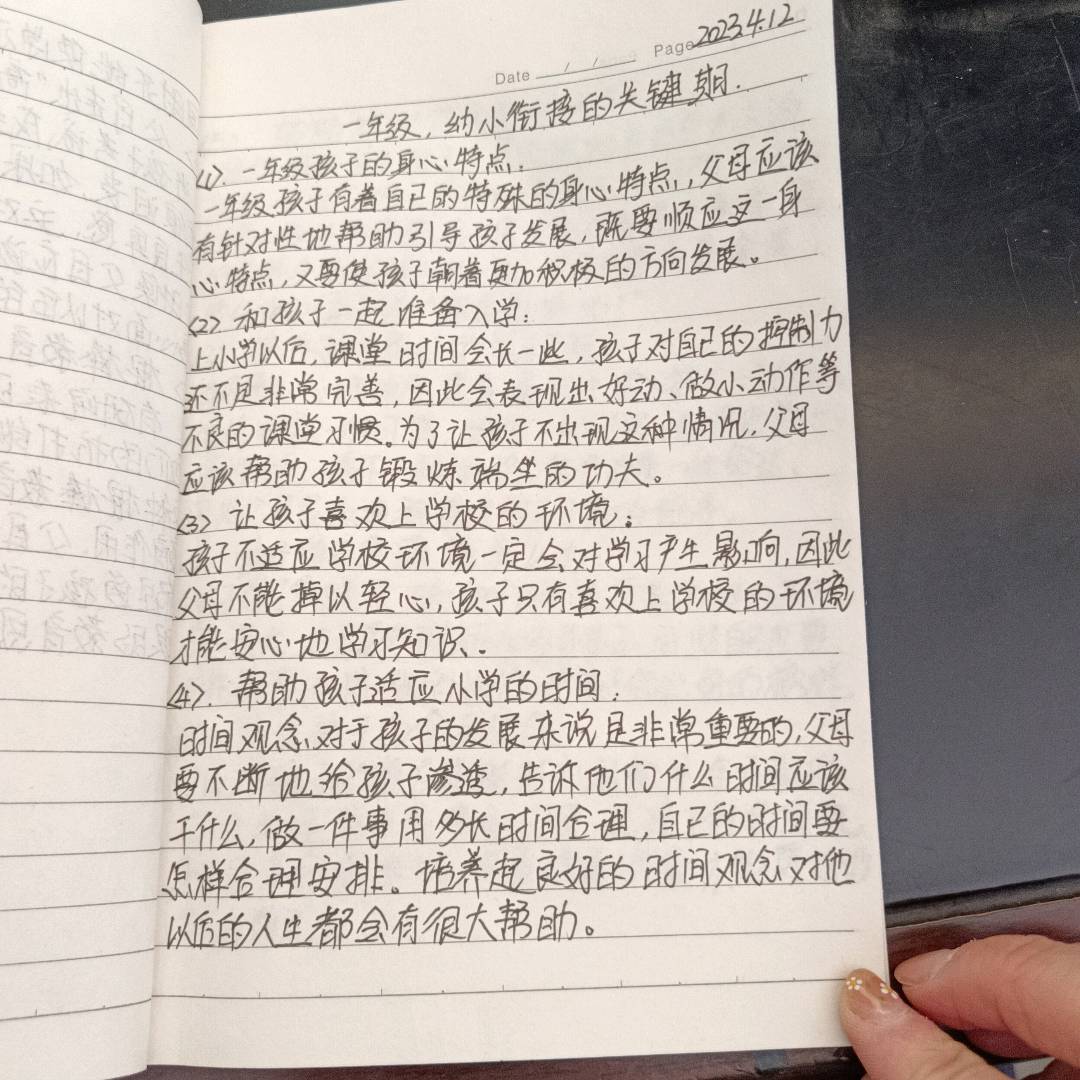 Date / / Page 2023.4.12
一年级，幼小衔接的关键期.
<1>. 一年级孩子的身心特点.
一年级孩子有着自己的特殊的身心特点，父母应该
有针对性地帮助引导孩子发展，既要顺应这一身
心特点，又要使孩子朝着更加积极的方向发展。
<2> 和孩子一起准备入学：
上小学以后，课堂时间会长一些，孩子对自己的控制力
还不是非常完善，因此会表现出好动、做小动作等
不良的课堂习惯。为了让孩子不出现这种情况，父母
应该帮助孩子锻炼端坐的功夫。
<3> 让孩子喜欢上学校的环境：
孩子不适应学校环境一定会对学习产生影响，因此
父母不能掉以轻心，孩子只有喜欢上学校的环境
才能安心地学习知识.
<4>. 帮助孩子适应小学的时间.
时间观念对于孩子的发展来说是非常重要的，父母
要不断地给孩子渗透，告诉他们什么时间应该
干什么，做一件事用多长时间合理，自己的时间要
怎样合理安排。培养起良好的时间观念对他
以后的人生都会有很大帮助。